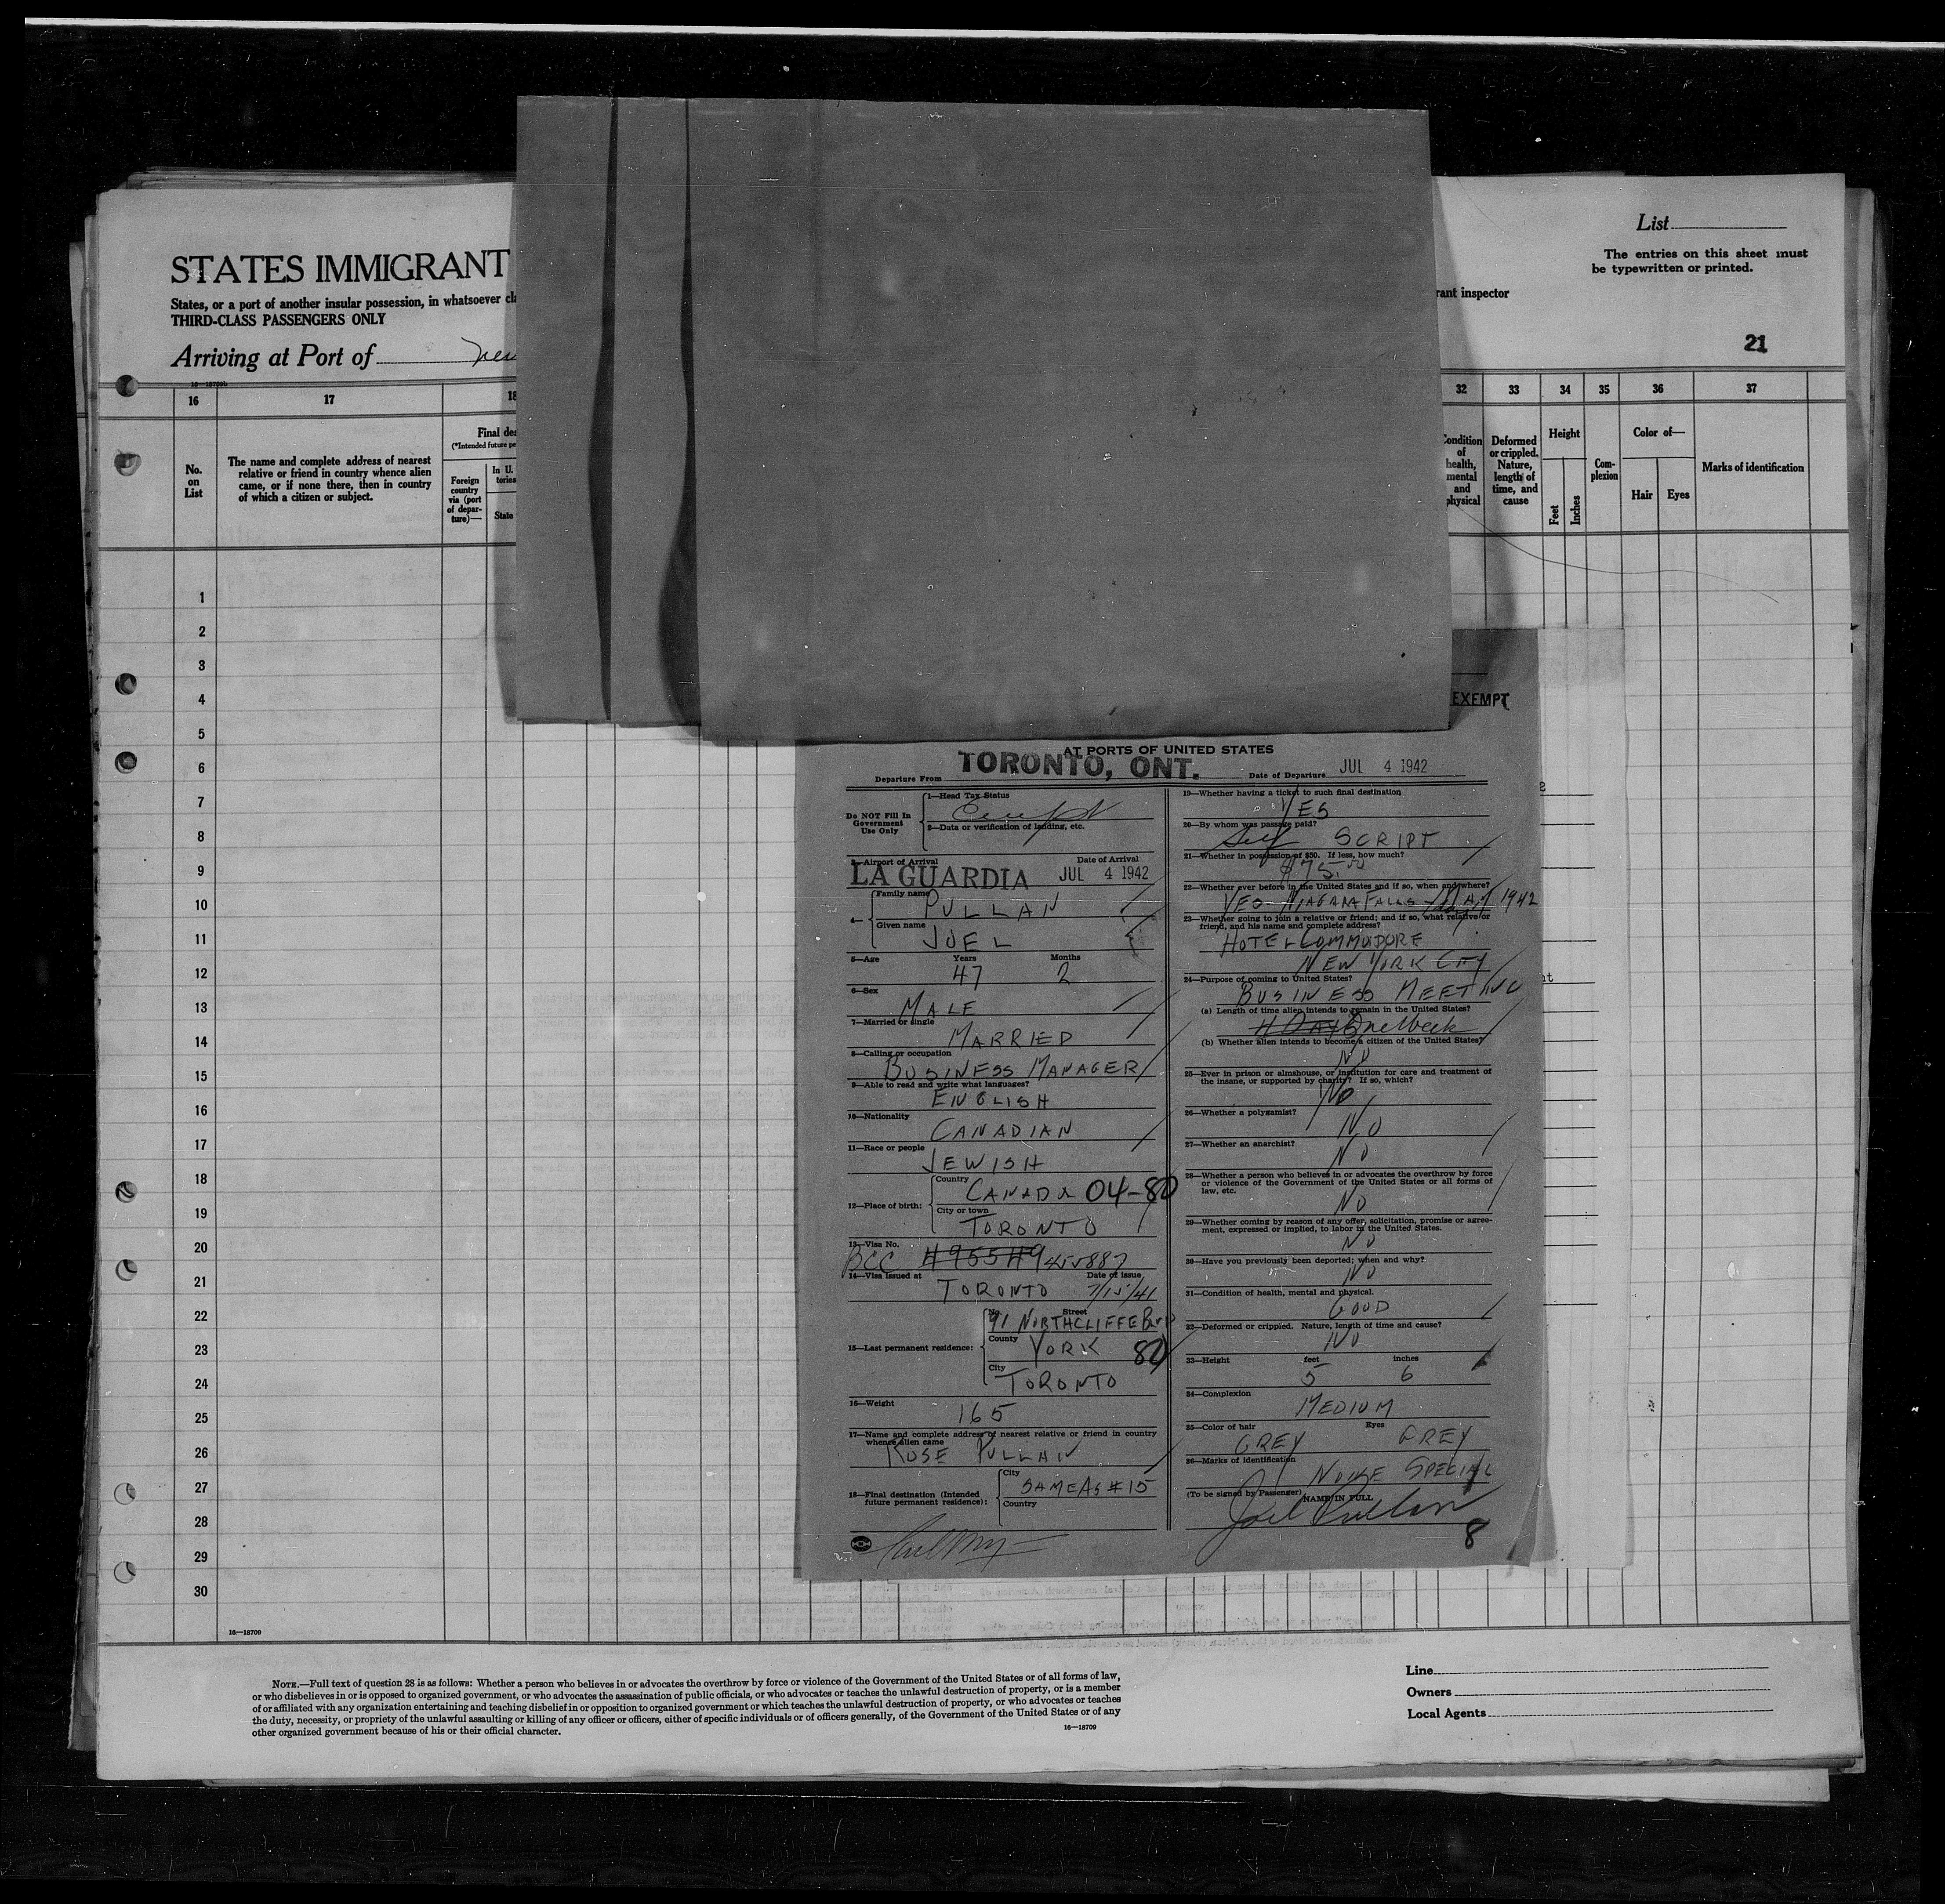 STATES IMMIGRANT
States, or a port of another insular possession, in whatsoever
THIRD-CLASS PASSENGERS ONLY
Arriving at Port of
List
The entries on this sheet must
be typewritten or printed.
inspector
21
16—18709b
16 17 18 32 33 34 35 36 37
No.
on
List
The name and complete address of nearest
relative or friend in country whence alien
came, or if none there, then in country
of which a citizen or subject.
Final
(*Intended future
Foreign
country
via (port
of depar-
ture)—
In U.
State
Condition
of
health,
mental
and
physical
Deformed
or crippled.
Nature,
length of
time, and
cause
Height
Feet
Inches
Com-
plexion
Color of—
Hair Eyes
Marks of identification
1
2
3
4
5
6
7
8
9
10
11
12
13
14
15
16
17
18
19
20
21
22
23
24
25
26
27
28
29
30
16—18709
EXEMPT
AT PORTS OF UNITED STATES
Departure From TORONTO, ONT. Date of Departure JUL 4 1942
Do NOT Fill In
Government
Use Only
1—Head Tax Status
Exempt
2—Data or verification of landing, etc.
3—Airport of Arrival Date of Arrival
LA GUARDIA JUL 4 1942
4—
Family name
PULLAN
Given name
JOEL
5—Age Years Months
47 2
6—Sex
MALE
7—Married or single
MARRIED
8—Calling or occupation
BUSINESS MANAGER
9—Able to read and write what languages?
ENGLISH
10—Nationality
CANADIAN
11—Race or people
JEWISH
12—Place of birth:
Country
CANADA 04-80
City or town
TORONTO
13—Visa No.
BCC 455887
14—Visa issued at Date of issue
TORONTO 7/15/41
15—Last permanent residence:
No. Street
91 NORTHCLIFFE
County
YORK 80
City
TORONTO
16—Weight
165
17—Name and complete address of nearest relative or friend in country
whence alien came
ROSE PULLAN
18—Final destination (Intended
future permanent residence):
City
SAME AS #15
Country
19—Whether having a ticket to such final destination
YES
20—By whom was passage paid?
Self SCRIPT
21—Whether in possession of $50. If less, how much?
$75.00
22—Whether ever before in the United States and if so, when and where?
YES NIAGARA FALLS MAY 1942
23—Whether going to join a relative or friend; and if so, what relative or
friend, and his name and complete address?
HOTEL COMMODORE
NEW YORK CITY
24—Purpose of coming to United States?
BUSINESS MEETING
(a) Length of time alien intends to remain in the United States?
4 DAY One Week
(b) Whether alien intends to become a citizen of the United States?
NO
25—Ever in prison or almshouse, or institution for care and treatment of
the insane, or supported by charity? If so, which?
NO
26—Whether a polygamist?
NO
27—Whether an anarchist?
NO
28—Whether a person who believes in or advocates the overthrow by force
or violence of the Government of the United States or all forms of
law, etc.
NO
29—Whether coming by reason of any offer, solicitation, promise or agree-
ment, expressed or implied, to labor in the United States.
NO
30—Have you previously been deported; when and why?
NO
31—Condition of health, mental and physical.
GOOD
32—Deformed or crippled. Nature, length of time and cause?
NO
33—Height feet inches
5 6
34—Complexion
MEDIUM
35—Color of hair Eyes
GREY GREY
36—Marks of identification
SPECIAL
(To be signed by Passenger) NAME IN FULL
Joel Pullan
8
NOTE.—Full text of question 28 is as follows: Whether a person who believes in or advocates the overthrow by force or violence of the Government of the United States or of all forms of law,
or who disbelieves in or is opposed to organized government, or who advocates the assassination of public officials, or who advocates or teaches the unlawful destruction of property, or is a member
of or affiliated with any organization entertaining and teaching disbelief in or opposition to organized government or which teaches the unlawful destruction of property, or who advocates or teaches
the duty, necessity, or propriety of the unlawful assaulting or killing of any officer or officers, either of specific individuals or of officers generally, of the Government of the United States or of any
other organized government because of his or their official character.
16—18709
Line
Owners
Local Agents